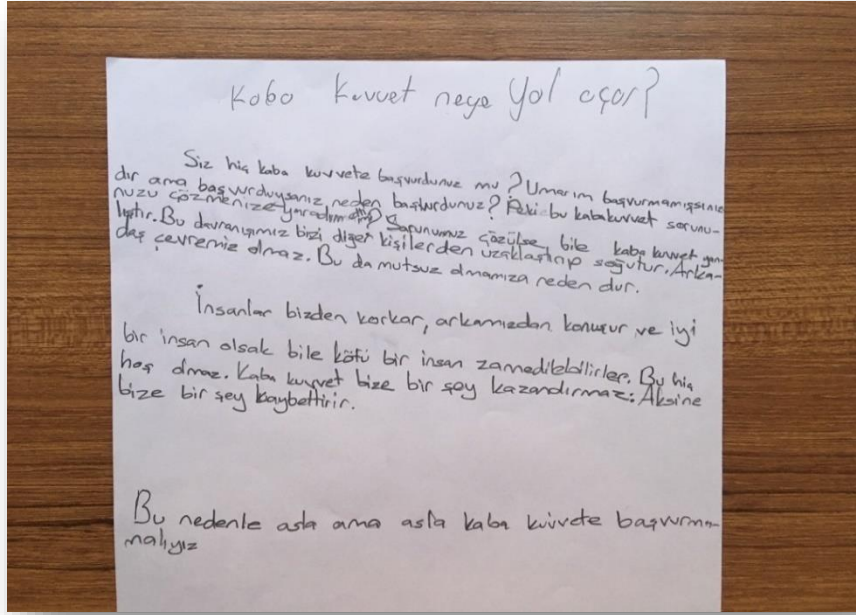 Kaba kuvvet neye yol açar?
Siz hiç kaba kuvvete başvurdunuz mu? Umarım başvurmamışsınız
dır ama başvurduysanız neden başvurdunuz? Peki bu kabakuvvet sorunu-
nuzu çözmenize yaradımı? Sorununuz çözülse bile kaba kuvvet yan-
lıştır. Bu davranışımız bizi diğer kişilerden uzaklaştırıp soğutur. Arka-
daş çevremiz olmaz. Bu da mutsuz olmamıza neden dur.
İnsanlar bizden korkar, arkamızdan konuşur ve iyi
bir insan olsak bile kötü bir insan zannedilebilirler. Bu hiç
hoş olmaz. Kaba kuvvet bize bir şey kazandırmaz: Aksine
bize bir şey kaybettirir.
Bu nedenle asla ama asla kaba kuvvete başvurma-
malıyız